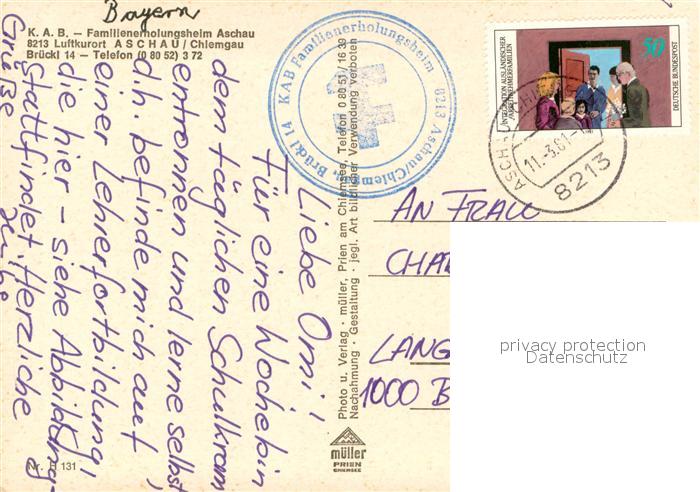 Bayern
K. A. B. — Familienerholungsheim Aschau
8213 Luftkurort ASCHAU / Chiemgau
Brückl 14 — Telefon (0 80 52) 3 72
Liebe Omi!
Für eine Woche bin
dem täglichen Schulkram
entronnen und lerne selbst,
d.h. befinde mich auf
einer Lehrerfortbildung,
die hier - siehe Abbildung -
stattfindet. Herzliche
Grüße
Nr. H 131
KAB Familienerholungsheim 8213 Aschau/Chiemgau, Brückl 14
Photo u. Verlag · müller, Prien am Chiemsee, Telefon 0 80 51/16 39
Nachahmung · Gestaltung · jegl. Art bildlicher Verwendung verboten
müller
PRIEN
CHIEMSEE
INTEGRATION AUSLÄNDISCHER
ARBEITNEHMERFAMILIEN
50
DEUTSCHE BUNDESPOST
11.-3.81
8213
AN FRAU
CHA
LANG
1000 B
privacy protection
Datenschutz